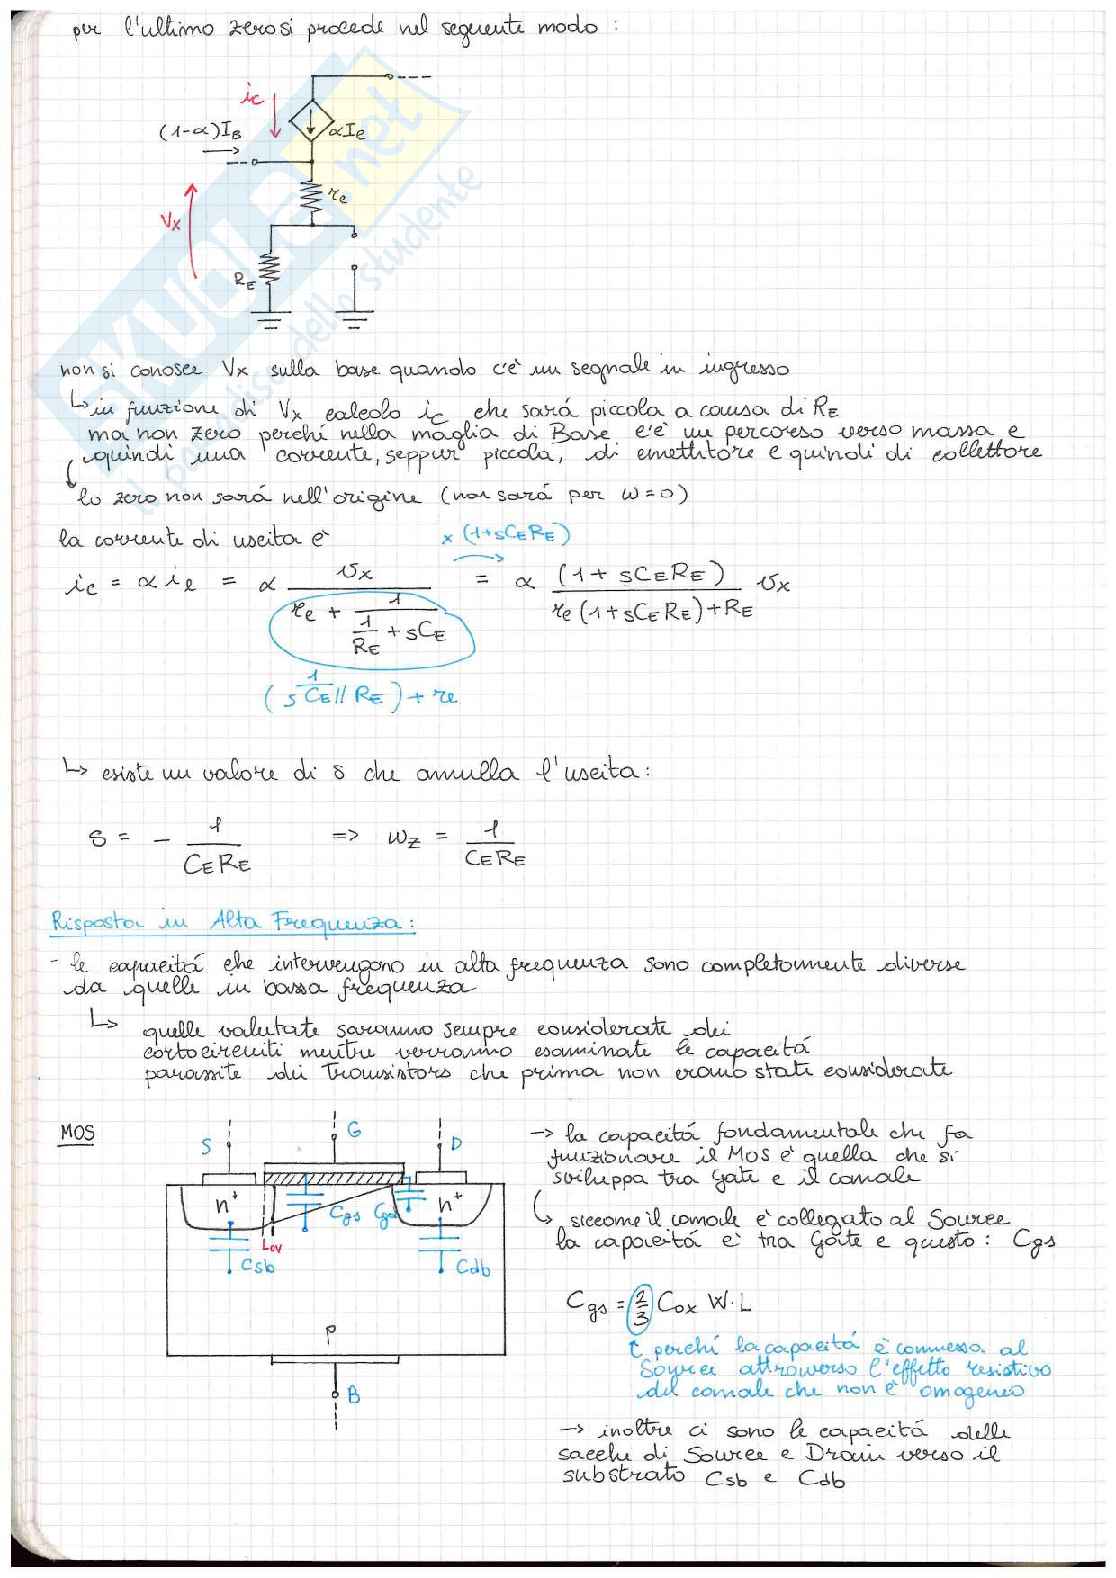 per l'ultimo zero si procede nel seguente modo :
ic
(1-α)IB
αIe
re
Vx
RE
non si conosce Vx sulla base quando c'è un segnale in ingresso
↳ in funzione di Vx calcolo ic che sará piccola a causa di RE
ma non zero perché nella maglia di Base c'è un percorso verso massa e
quindi una corrente, seppur piccola, di emettitore e quindi di collettore
lo zero non sará nell'origine (non sará per w=0)
la corrente di uscita è
x (1+sCERE)
ic = α ie = α vx / (re + 1/(1/RE + sCE)) = α (1 + sCERE) / (re (1+sCERE)+RE) vx
(1/sCE // RE) + re
↳ esiste un valore di s che annulla l'uscita:
s = - 1/CERE => wz = 1/CERE
Risposta in Alta Frequenza:
- le capacitá che intervengono in alta frequenza sono completamente diverse
da quelle in bassa frequenza
↳ quelle valutate saranno sempre considerate dei
cortocircuiti mentre verranno esaminate le capacitá
parassite dei transistors che prima non erano state considerate
MOS
S
G
D
n+
n+
Cgs
Cgd
Lov
Csb
Cdb
P
B
→ la capacitá fondamentale che fa
funzionare il MOS è quella che si
sviluppa tra gate e il canale
↳ siccome il canale è collegato al Source
la capacitá è tra Gate e questo: Cgs
Cgs = 2/3 Cox W·L
perché la capacitá è connessa al
Source attraverso l'effetto resistivo
del canale che non è omogeneo
→ inoltre ci sono le capacitá delle
sacche di Source e Drain verso il
substrato Csb e Cdb
skuola.net
il paradiso dello studente